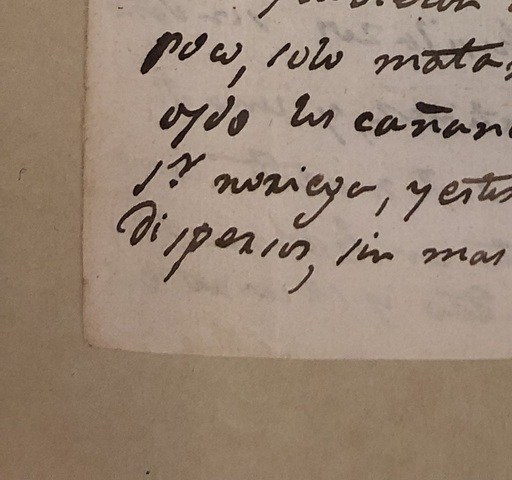 poco, solo matar
oydo los cañan
Sr noriega, y estas
Dispersos, sin mas